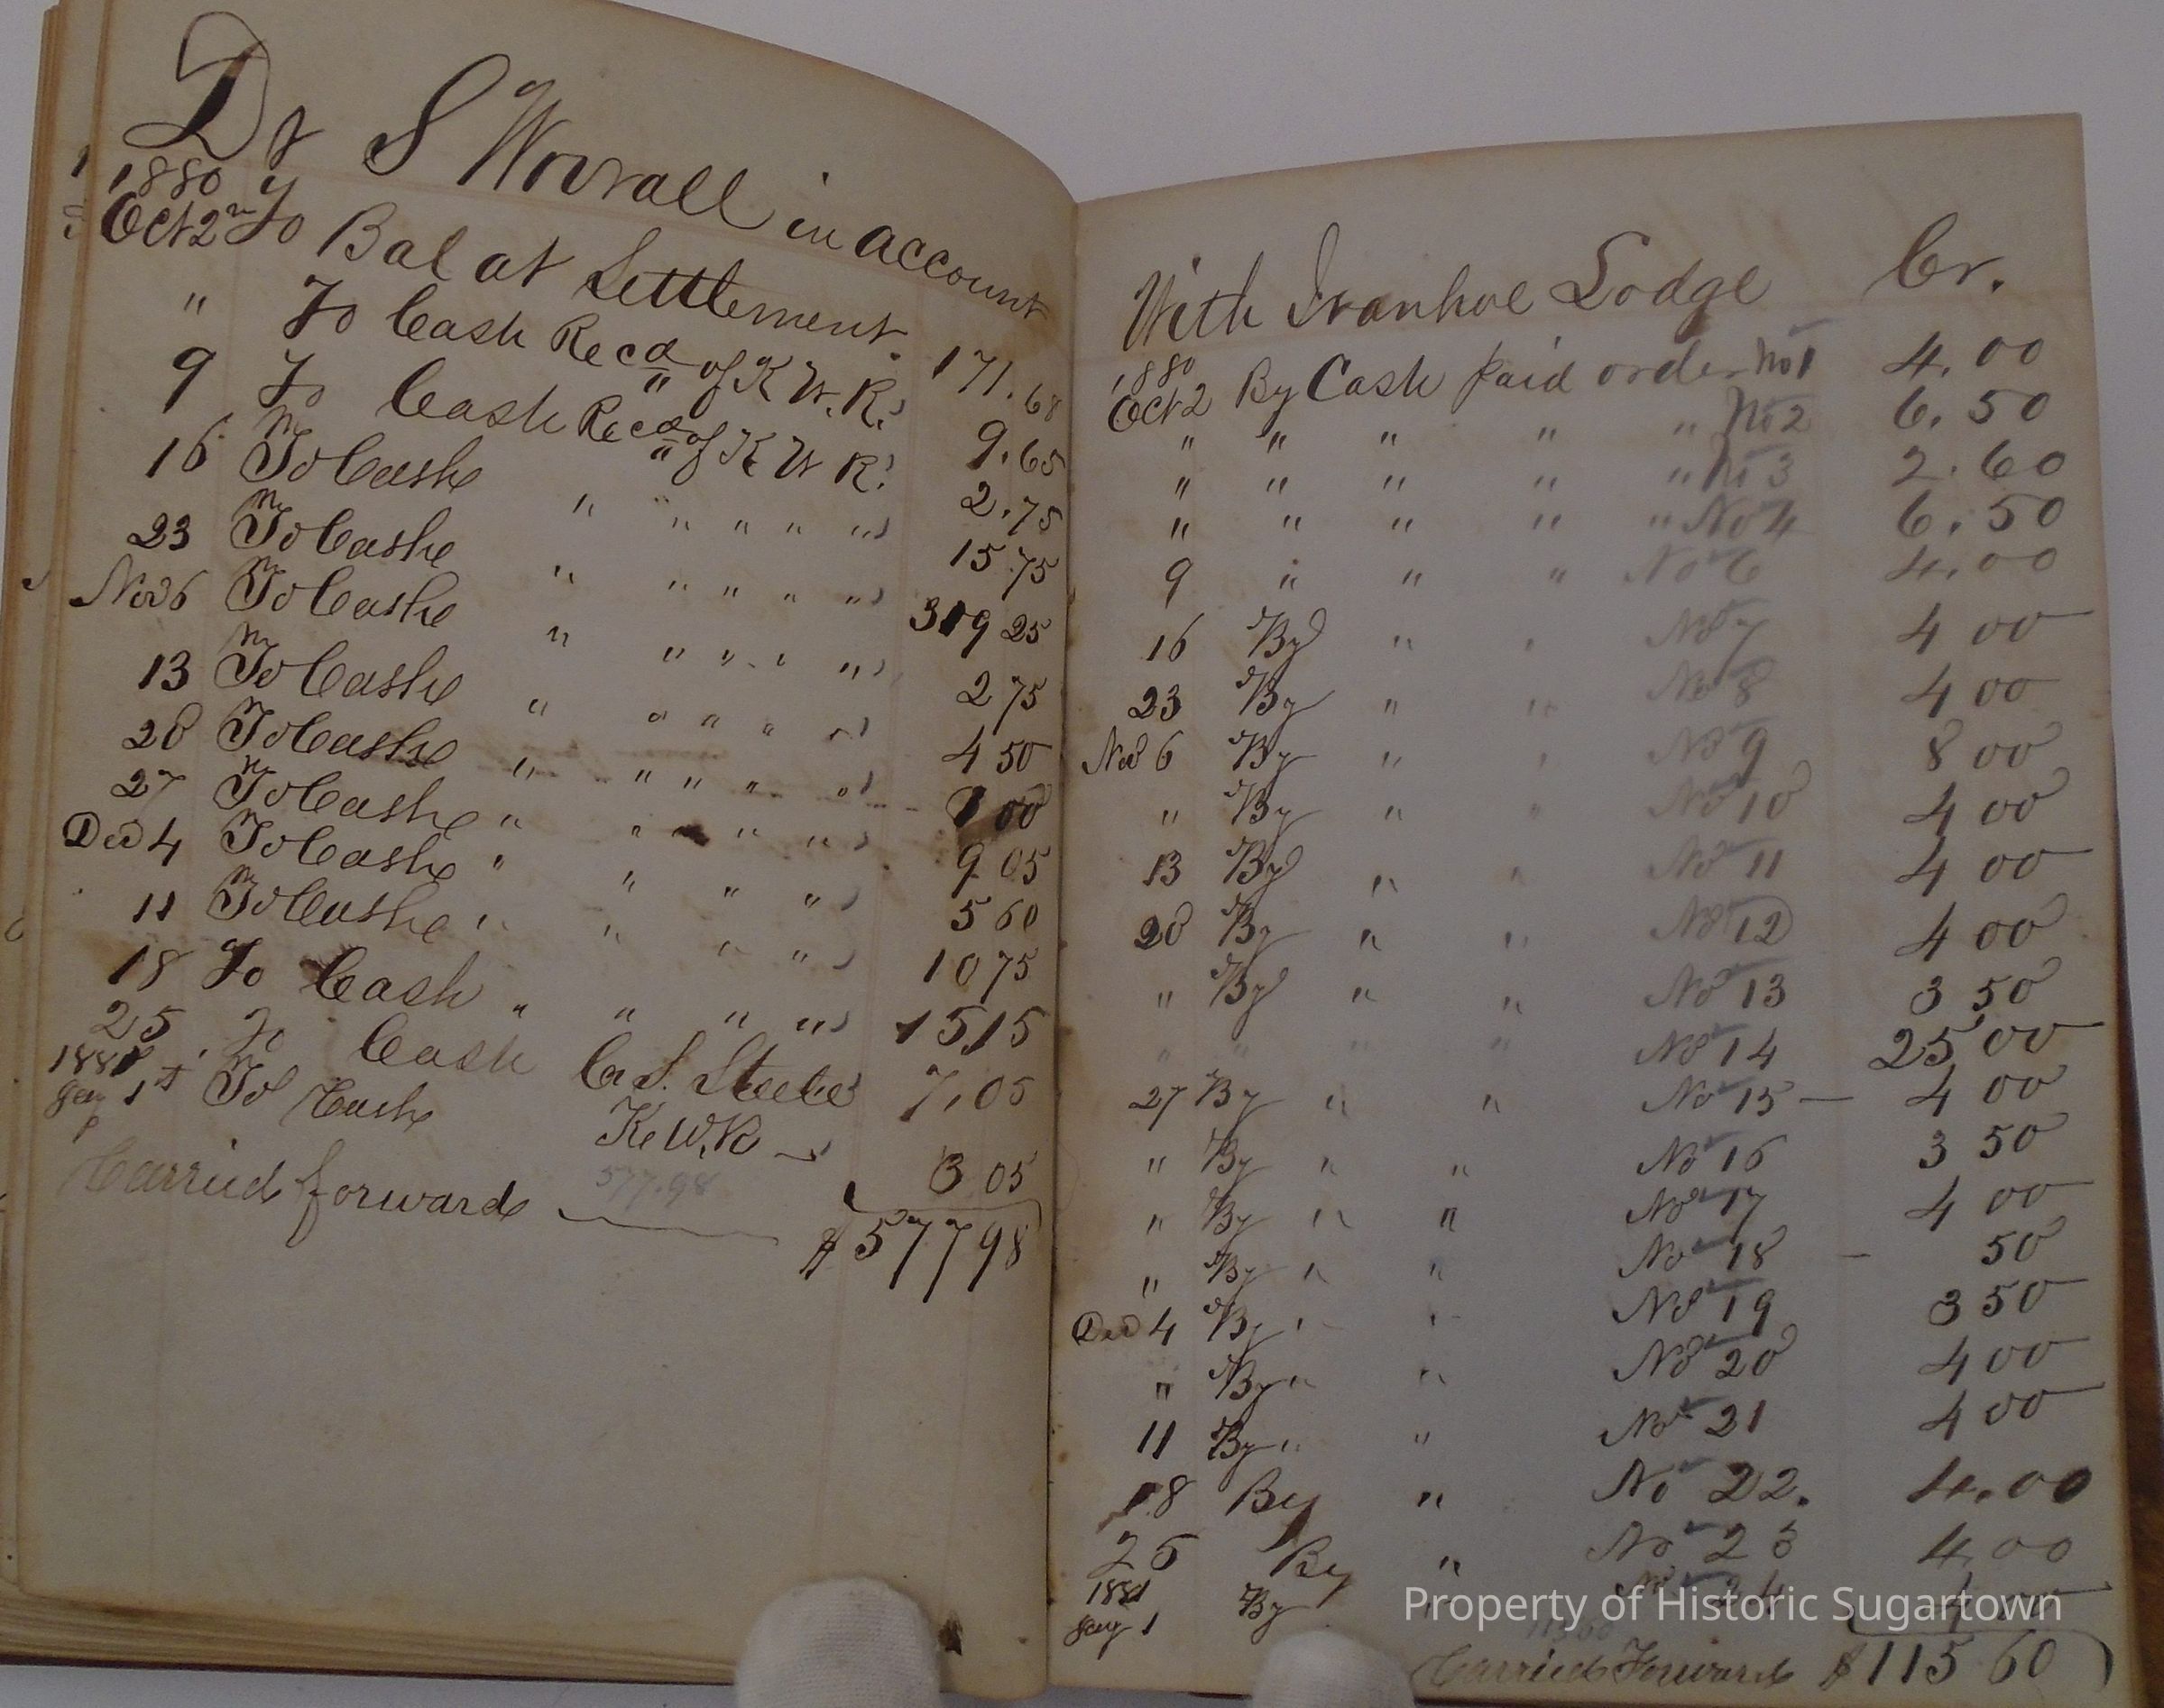 Dr S Worrall in account
1880
Oct 2nd To Bal at Settlement. 171.68
" To Cash Recd of K W. K. 9.65
9 To Cash Recd of K W K. 2.75
16 To Cash " " " " " " 15 75
23 To Cash " " " " " 319 25
Nov 6 To Cash " " " " " 2 75
13 To Cash " " " " " 4 50
20 To Cash " " " " " 00
27 To Cash " " " " 9 05
Dec 4 To Cash " " " " 5 60
11 To Cash " " " " 10 75
18 To Cash " " " " 15,15
25 To Cash C. S. Steele 7,05
1881
Jan 1st To Cash K W. K 3 05
Carried forward 577.98 $577 98
With Ivanhoe Lodge Cr.
1880
Oct 2 By Cash paid order No 1 4.00
" " " " " No 2 6.50
" " " " " No 3 2.60
" " " " " No 4 6.50
9 " " " No 6 4.00
16 By " " No 7 4 00
23 By " " No 8 4 00
Nov 6 By " " No 9 8 00
" By " " No 10 4 00
13 By " " No 11 4 00
20 By " " No 12 4 00
" By " " No 13 3 50
" " " " No 14 25,00
27 By " " No 15 — 4 00
" By " " No 16 3 50
" By " " No 17 4 00
" By " " No 18 — 50
Dec 4 By " " No 19 3 50
" By " " No 20 4 00
11 By " " No 21 4 00
18 By " No 22. 4.00
25 By " No 23 4.00
1881
Jan 1 By " No 24 4 00
Carried Forward $115 60
Property of Historic Sugartown